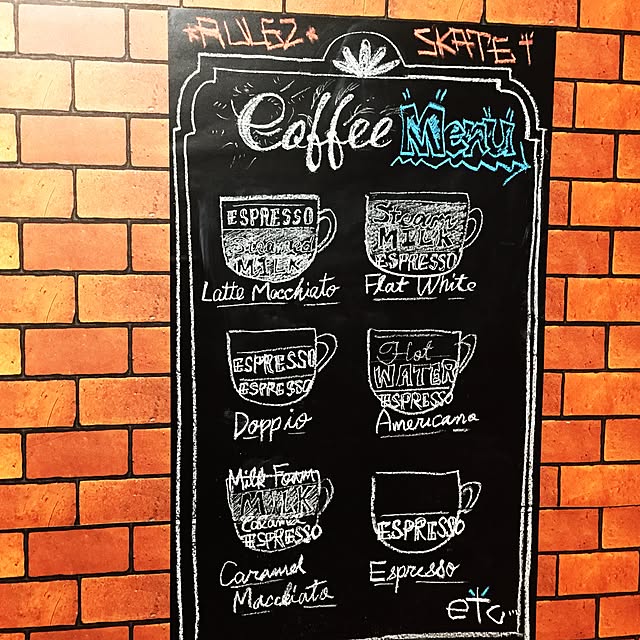 *RULEZ*
SKATE†
Coffee Menu
ESPRESSO
Steamed
MILK
Latte Macchiato
Steam
MILK
ESPRESSO
Flat White
ESPRESSO
ESPRESSO
Doppio
Hot
WATER
ESPRESSO
Americano
Milk Foam
MILK
Caramel
ESPRESSO
Caramel
Macchiato
ESPRESSO
Espresso
etc...